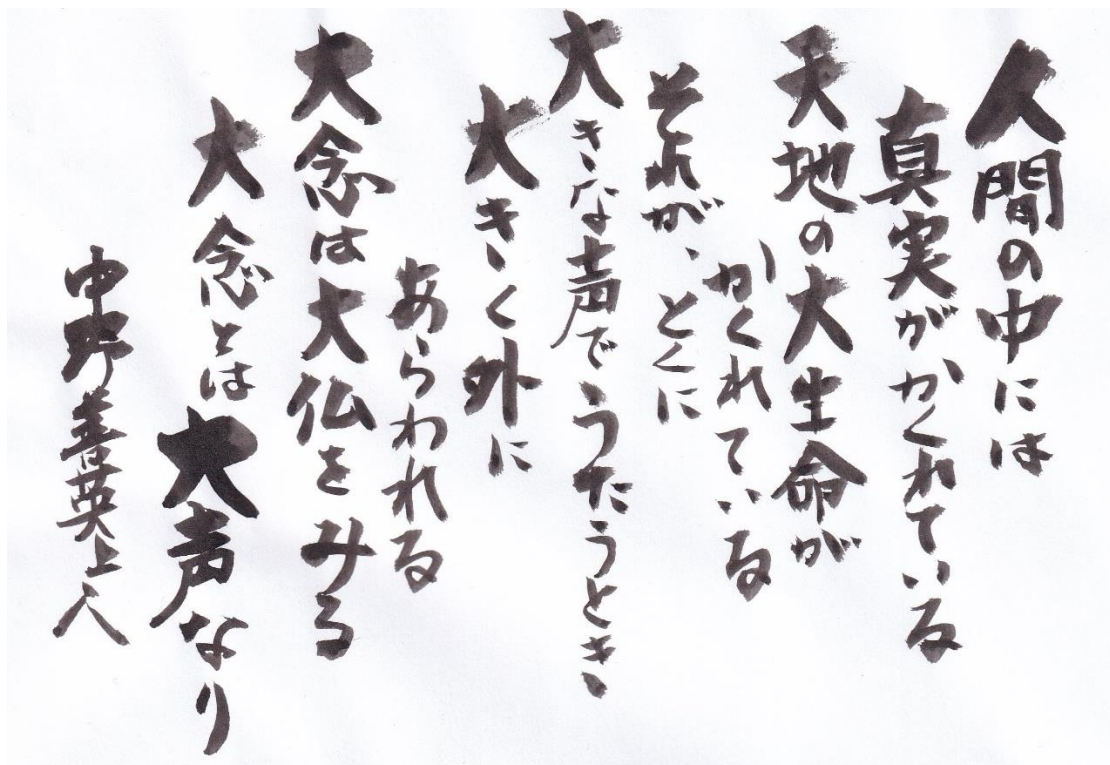 人間の中には
真実がかくれている
天地の大生命が
かくれている
それが、とくに
大きな声でうたうとき
大きく外に
あらわれる
大念は大仏をみる
大念とは大声なり
中野善英上人